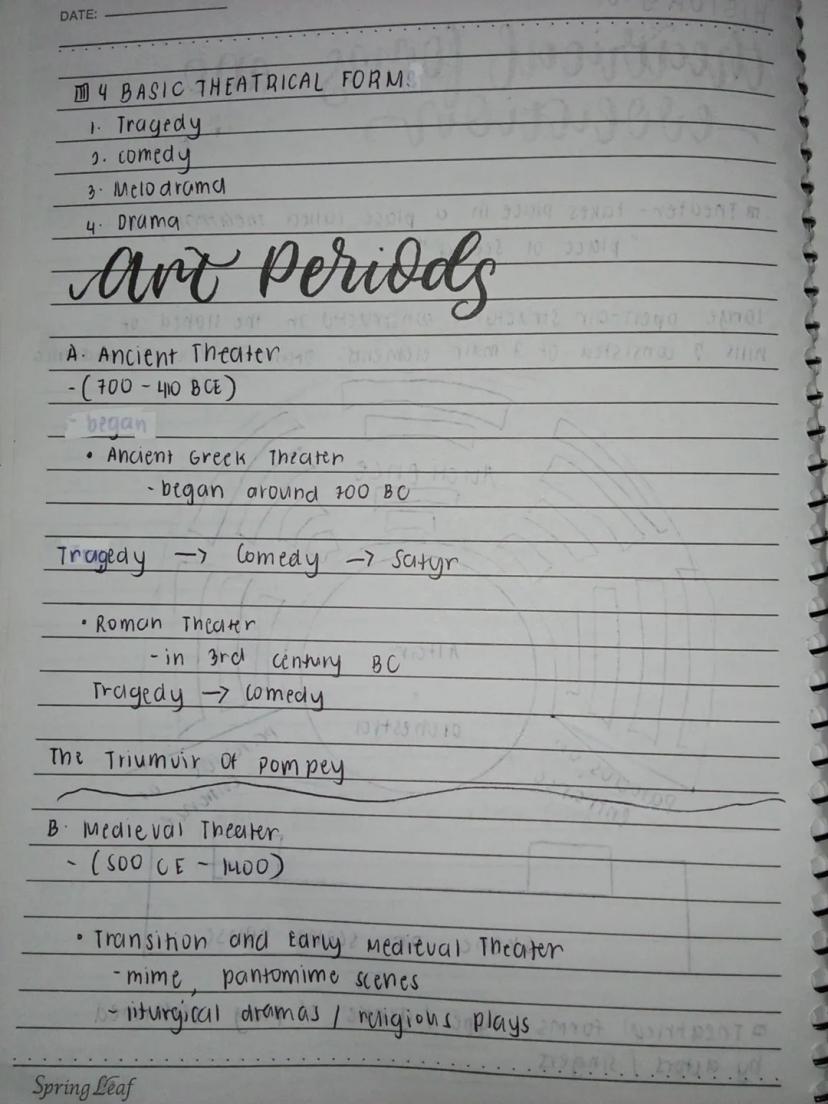 DATE:
4 BASIC THEATRICAL FORMS
1. Tragedy
2. comedy
3. Melodrama
4. Drama
Art Periods
A. Ancient Theater
- (700 - 410 BCE)
- began
• Ancient Greek Theater
- began around 700 BC
Tragedy → Comedy → Satyr
• Roman Theater
- in 3rd century BC
Tragedy → Comedy
The Triumvir of Pompey
B. Medieval Theater
- (500 CE - 1400)
• Transition and Early Medieval Theater
- mime, pantomime scenes
- liturgical dramas / religious plays
Spring Leaf